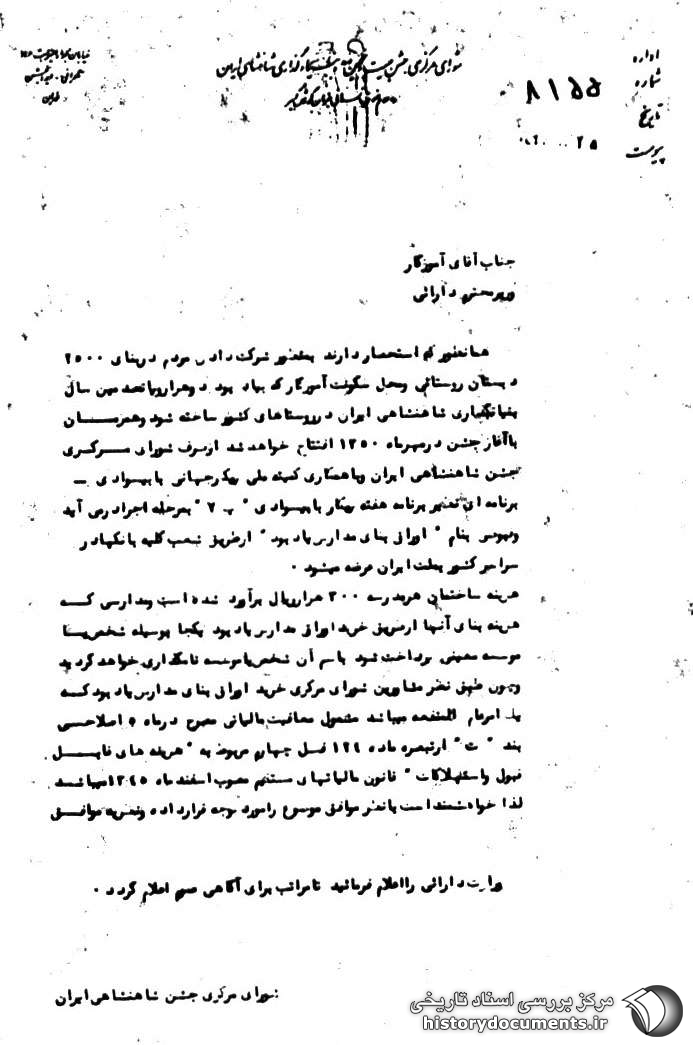 اداره
شماره
۸۱۵۵
تاریخ
پیوست
شورای مرکزی جشن شاهنشاهی ایران
جناب آقای آموزگار
وزیر محترم دارائی
همانطور که استحضار دارند بمنظور شرکت دادن مردم در بنای ۲۵۰۰
دبستان روستائی ومحل سکونت آموزگار که بیاد بود دوهزاروپانصدمین سال
بنیانگذاری شاهنشاهی ایران در روستاهای کشور ساخته شود وهمزمان
باآغاز جشن در مهرماه ۱۳۵۰ افتتاح خواهد شد ازطرف شورای مرکزی
جشن شاهنشاهی ایران وباهمکاری کمیته ملی پیکارجهانی با بیسوادی ــ
برنامه ای نظیر برنامه هفته پیکار با بیسوادی " ب ۷ " بمرحله اجرا درمی آید
بنام " اوراق بنای مدارس یاد بود " ازطریق شعب کلیه بانکها در
سراسر کشور بملت ایران عرضه میشود ۰
هزینه ساختمان هرمدرسه ۳۰۰ هزارریال برآورد شده است ومدارسی که
هزینه بنای آنها ازطریق خرید اوراق مدارس یاد بود یکجا بوسیله شخص یا
موسسه معینی پرداخت شود باسم آن شخص یا موسسه نامگذاری خواهد گردید
وچون طبق نظر مشاورین شورای مرکزی خرید اوراق بنای مدارس یاد بود که
یک امر عام المنفعه میباشد مشمول معافیت مالیاتی مصرح در ماده ۵ اصلاحی
بند " ث " ازتبصره ماده ۱۲۴ فصل چهارم مربوط به " هزینه های قابل
قبول واستهلاکات " قانون مالیاتهای مستقیم مصوب اسفند ماه ۱۳۴۵ میباشد
لذا خواهشمند است بانظر موافق موضوع رامورد توجه قرارداده ونظریه موافق
وزارت دارائی رااعلام فرمائید تامراتب برای آگاهی عموم اعلام گردد ۰
شورای مرکزی جشن شاهنشاهی ایران
مرکز بررسی اسناد تاریخی
historydocuments.ir